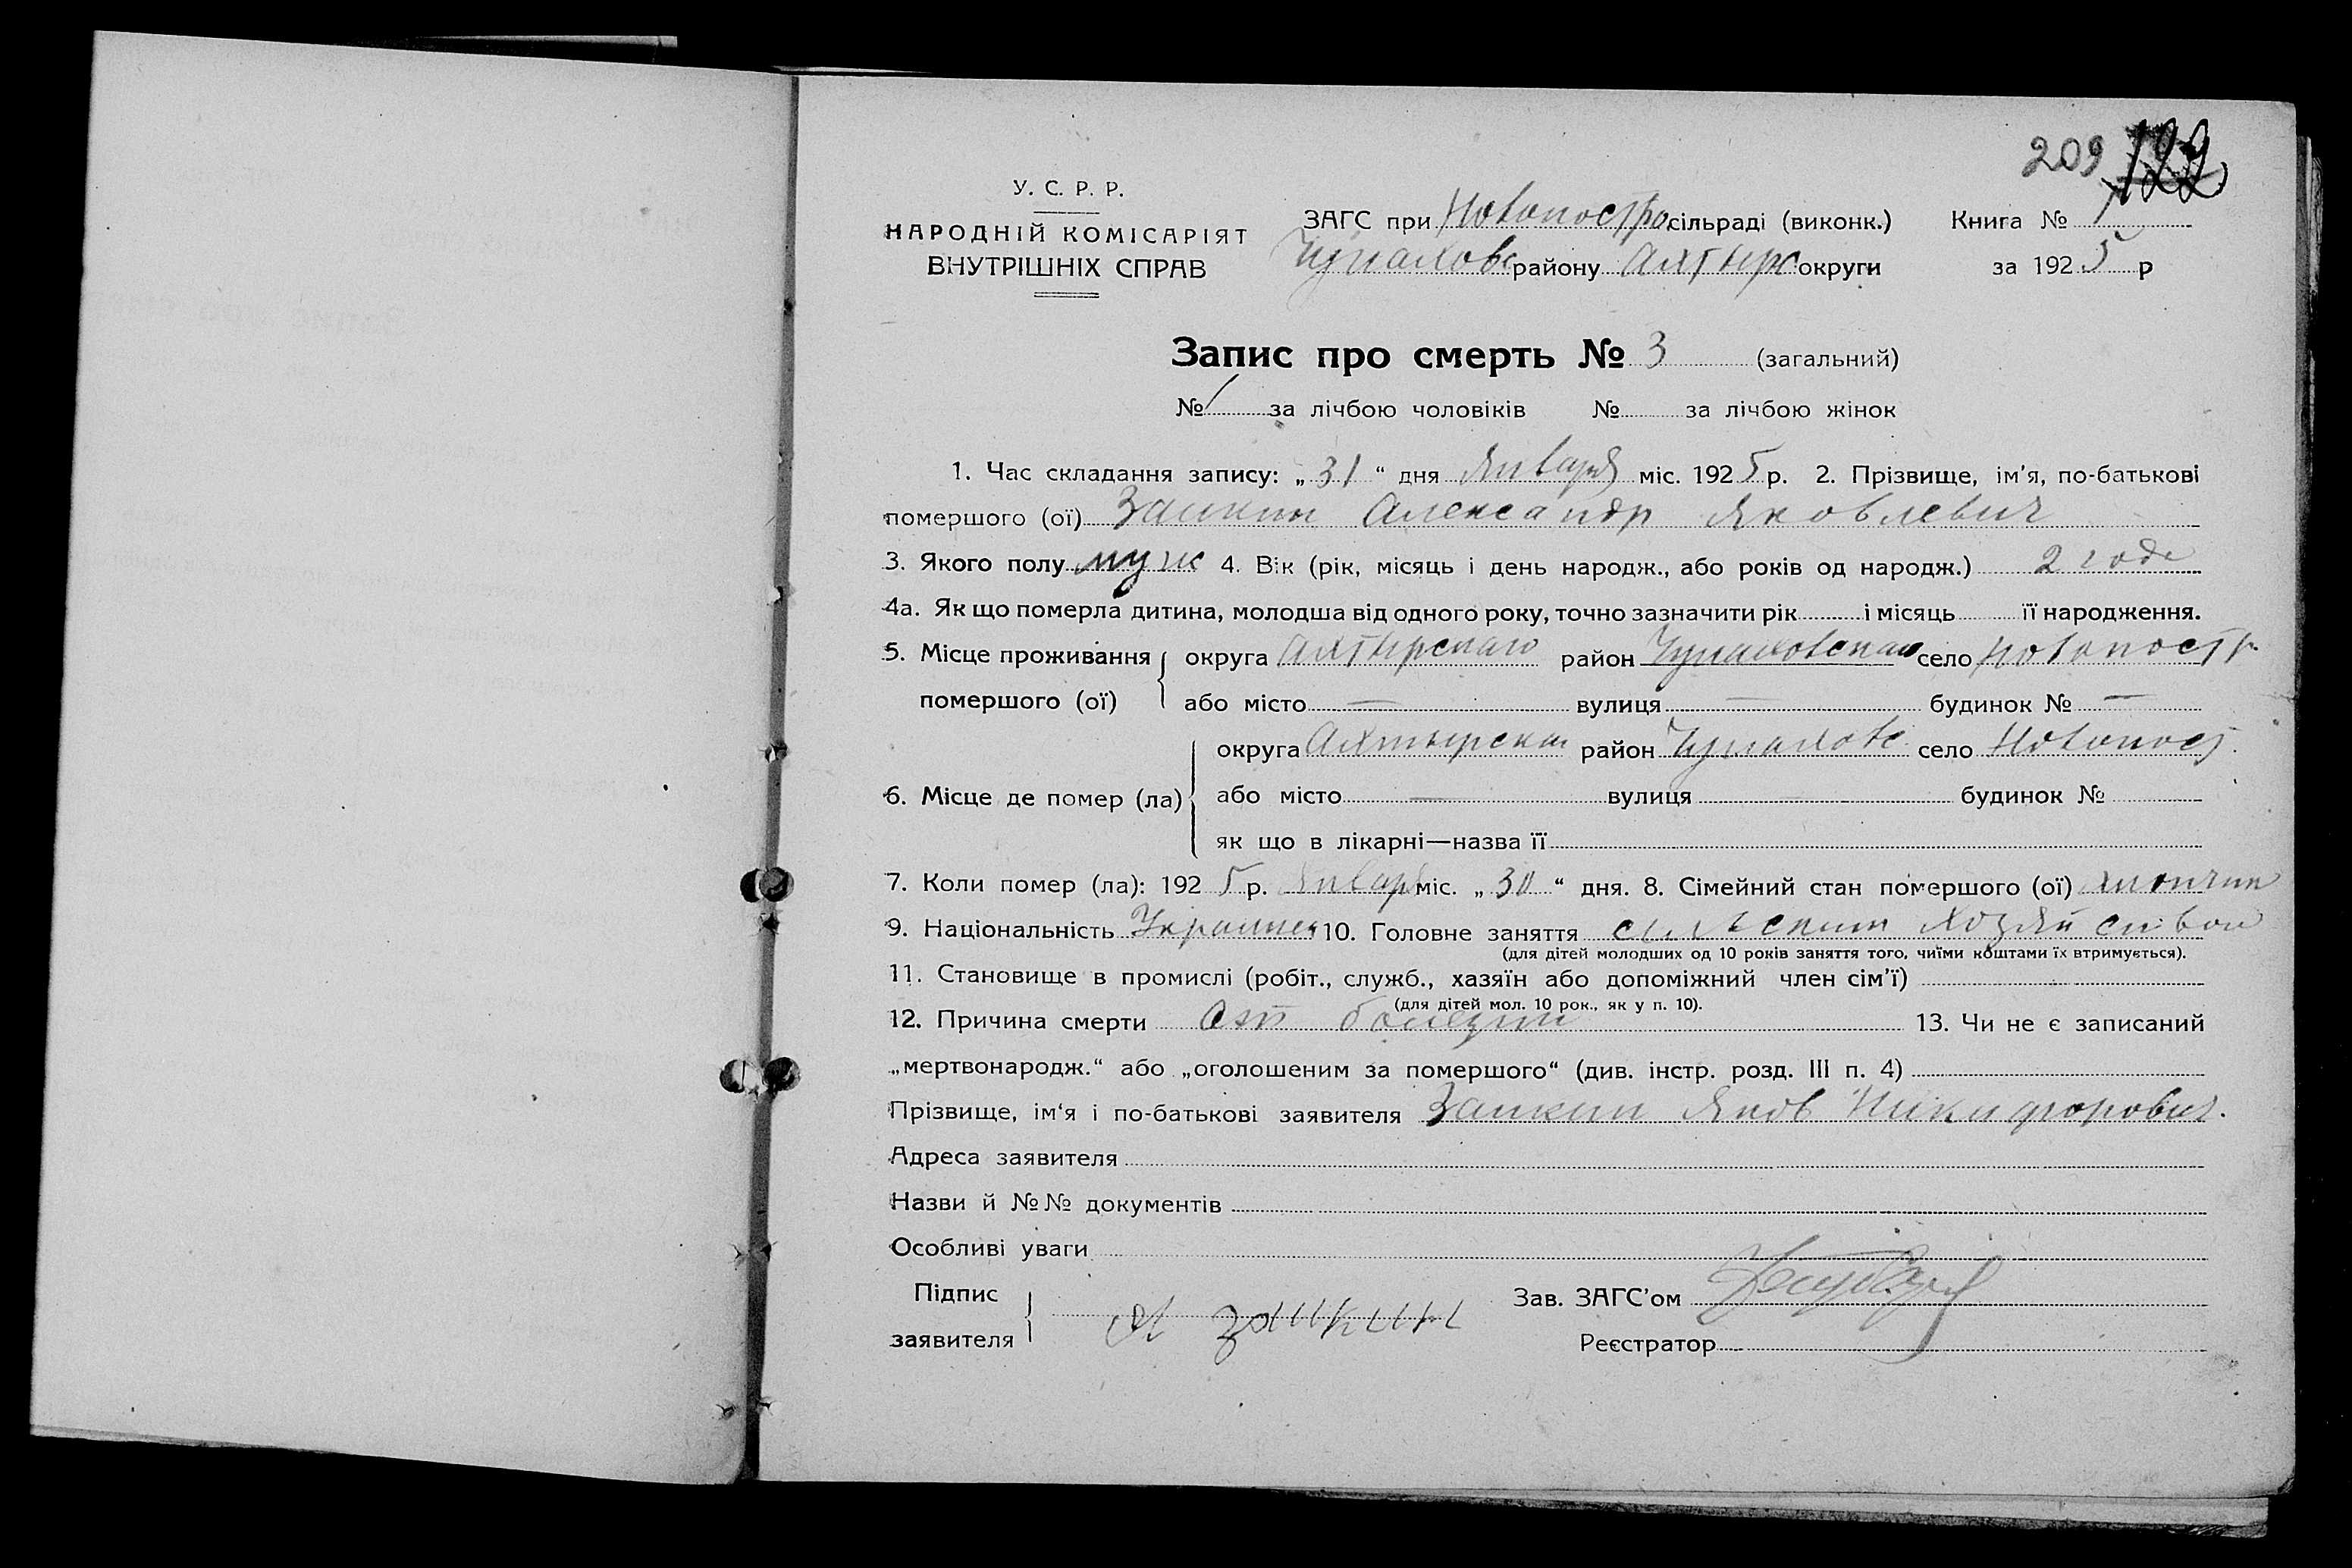 209 122
У. С. Р. Р.
НАРОДНІЙ КОМІСАРІЯТ
ВНУТРІШНІХ СПРАВ
ЗАГС при Новопостро сільраді (виконк.) Книга № 1
Чупаховс району Ахтырс округи за 1925 р
Запис про смерть № 3 (загальний)
№ 1 за лічбою чоловіків № за лічбою жінок
1. Час складання запису: „31“ дня Января міс. 1925 р. 2. Прізвище, ім'я, по-батькові
помершого (ої) Заикин Александр Яковлевич
3. Якого полу муж 4. Вік (рік, місяць і день народж., або років од народж.) 2 года
4а. Як що померла дитина, молодша від одного року, точно зазначити рік і місяць її народження.
5. Місце проживання помершого (ої) округа Ахтырскаго район Чупаховскаго село Новопостр
або місто — вулиця — будинок № —
6. Місце де помер (ла) округа Ахтырскаг район Чупаховс село Новопост.
або місто — вулиця — будинок №
як що в лікарні—назва її
7. Коли помер (ла): 1925 р. Января міс. „30“ дня. 8. Сімейний стан помершого (ої) хлопчик
9. Національність Украинец 10. Головне заняття сельским хозяйством
(для дітей молодших од 10 років заняття того, чиїми коштами їх втримується).
11. Становище в промислі (робіт., служб., хазяїн або допоміжний член сім'ї)
(для дітей мол. 10 рок., як у п. 10).
12. Причина смерти От болезни 13. Чи не є записаний
„мертвонародж.“ або „оголошеним за помершого“ (див. інстр. розд. III п. 4)
Прізвище, ім'я і по-батькові заявителя Заикин Яков Никифорович.
Адреса заявителя
Назви й №№ документів
Особливі уваги
Підпис заявителя Я Заикин
Зав. ЗАГС'ом
Реєстратор